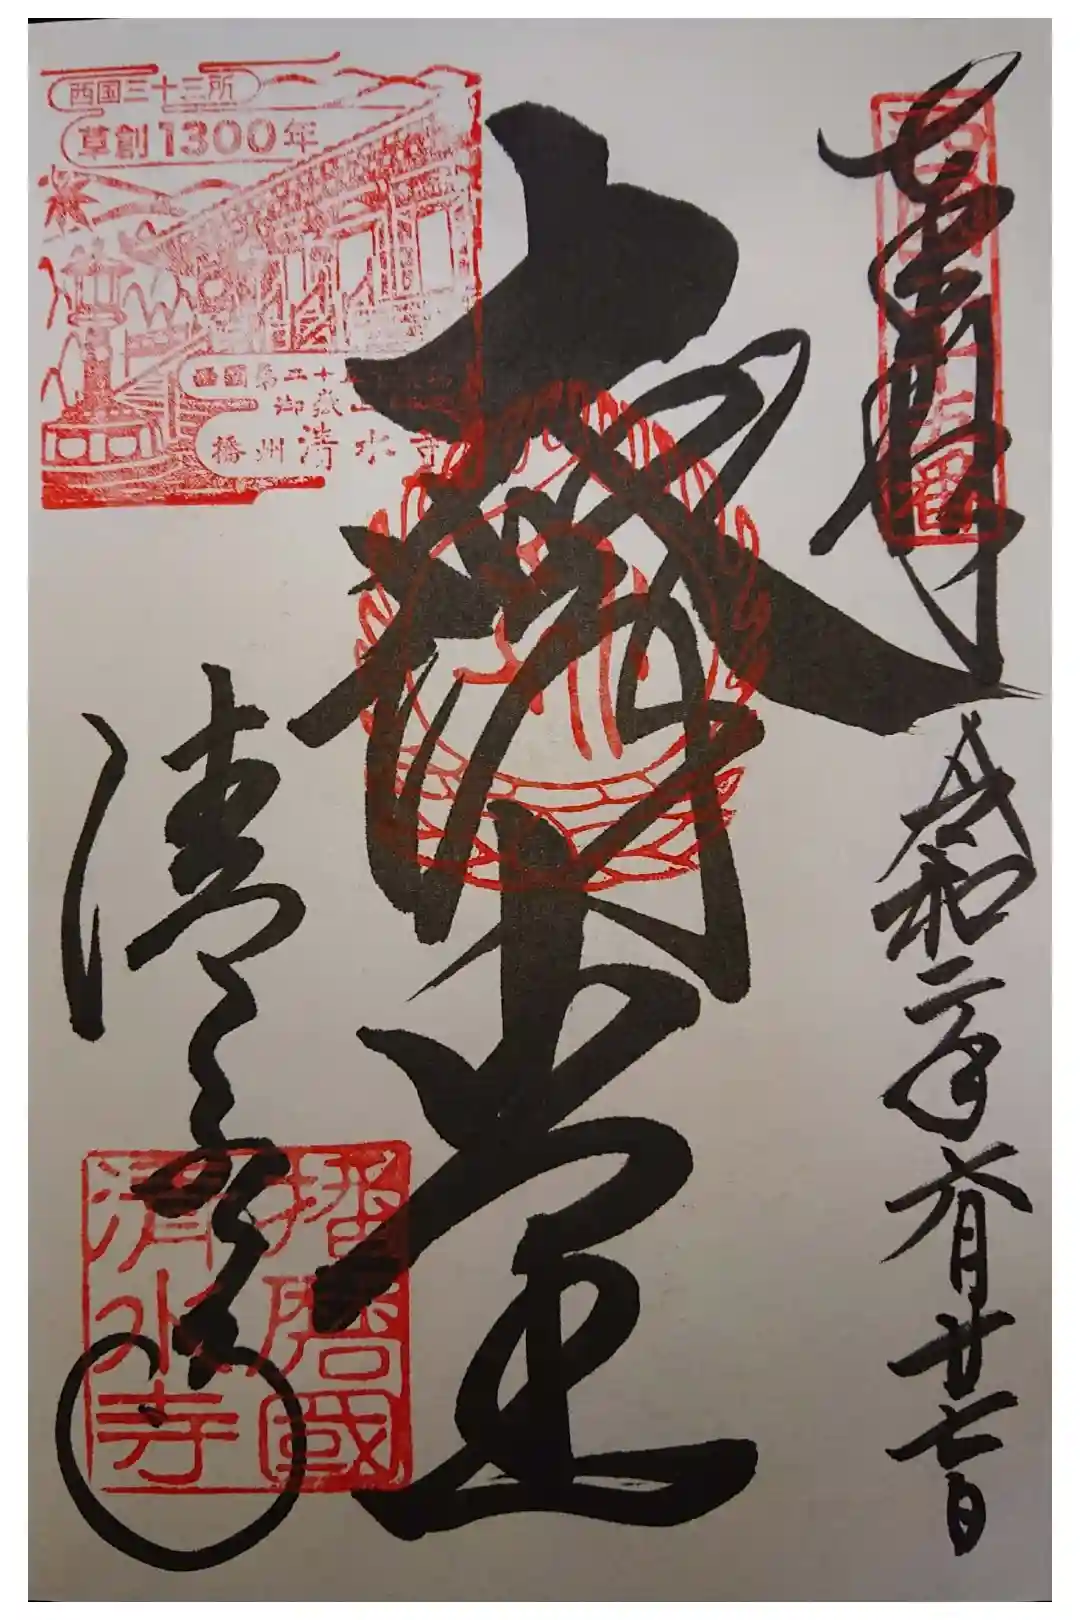 奉拝
西国二十五番
令和二年六月廿七日
大悲堂
清水寺
西国三十三所
草創1300年
西国第二十五
御嶽山
播州清水寺
播磨國
清水寺